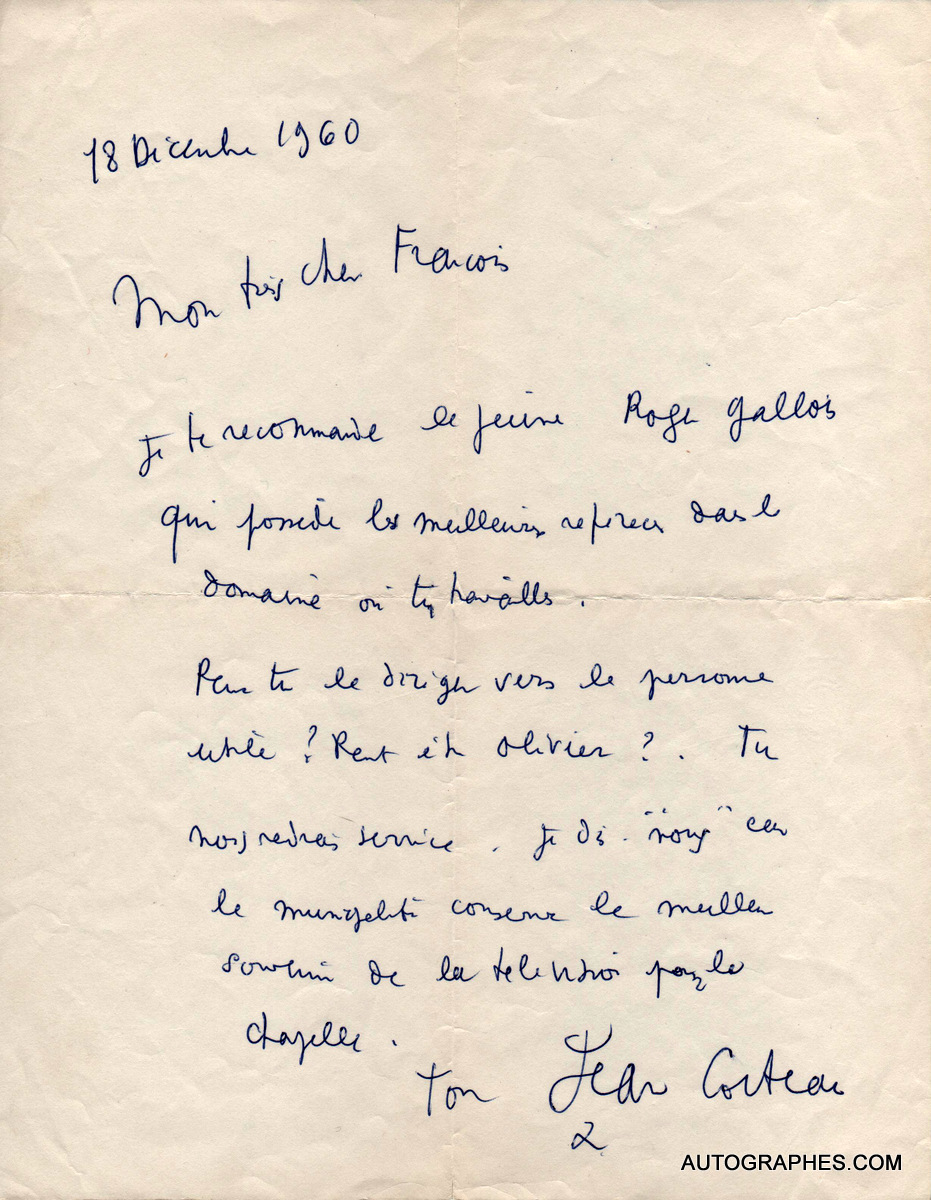 18 Décembre 1960
Mon très cher François
Je te recommande le jeune Roger Gallois
qui possède les meilleures références dans le
domaine où tu travailles.
Peux tu le diriger vers la personne
utile ? Peut être Olivier ? . Tu
nous rendrais service . Je dis "nous" car
la municipalité conserve le meilleur
souvenir de la television pour la
chapelle .
ton Jean Cocteau
AUTOGRAPHES.COM